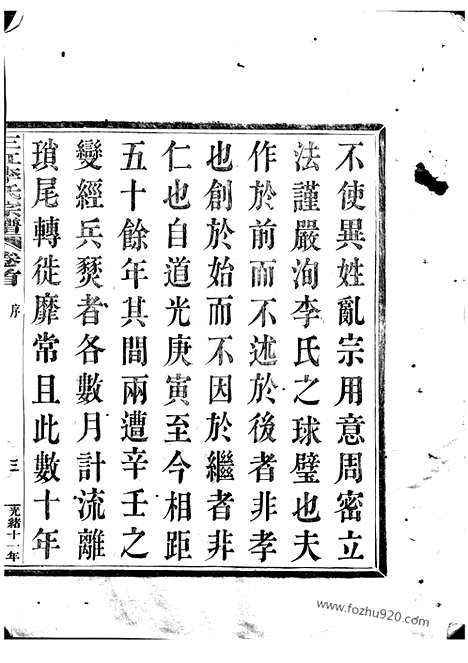 不使異姓亂宗用意周密立
法謹嚴洵李氏之球璧也夫
作於前而不述於後者非孝
也創於始而不因於繼者非
仁也自道光庚寅至今相距
五十餘年其間兩遭辛壬之
變經兵燹者各數月計流離
瑣尾轉徙靡常且此數十年
三江李氏宗譜 卷首 序 三 光緒十一年
www.fozhu920.com